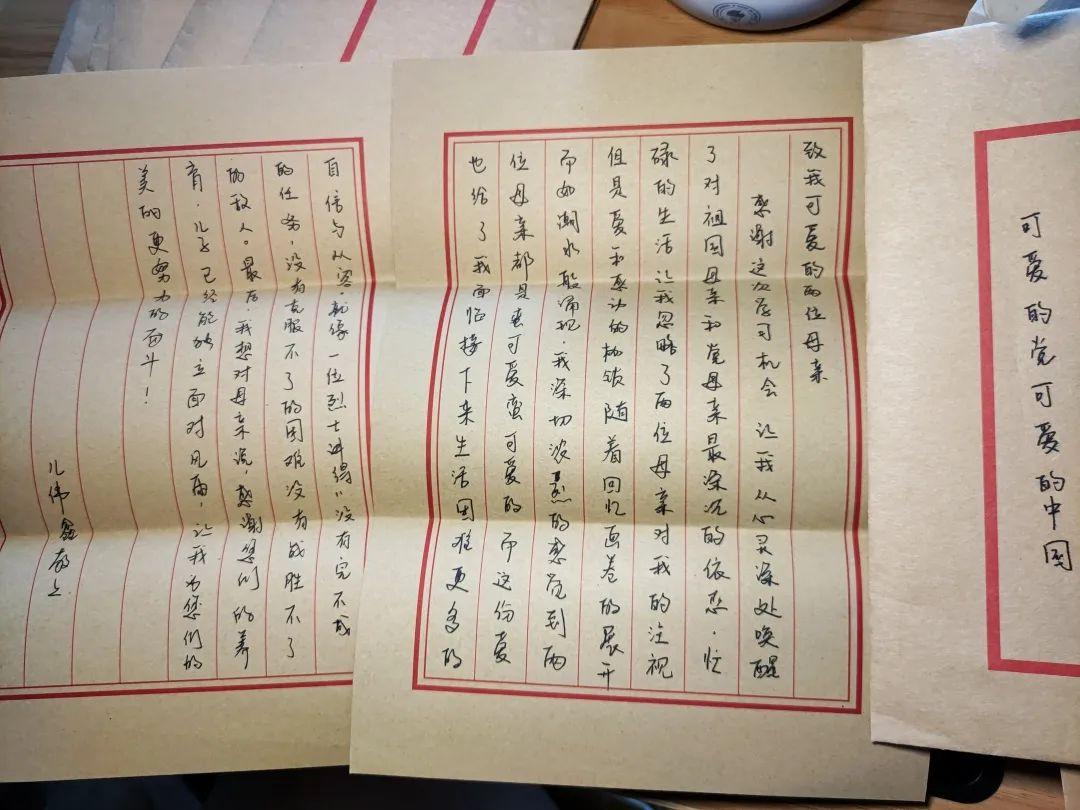 可爱的党可爱的中国
致我可爱的两位母亲
感谢这次学习机会 让我从心灵深处唤醒
了对祖国母亲和党母亲最深沉的依恋.忙
碌的生活 让我忽略了两位母亲对我的注视
但是爱和感动的枷锁随着回忆画卷的展开
而如潮水般涌现.我深切浓烈的感觉到两
位母亲都是蛮可爱蛮可爱的 而这份爱
也给了我面临接下来生活困难更多的
自信与从容.就像一位烈士讲得"没有完不成
的任务,没有克服不了的困难没有战胜不了
的敌人。最后.我想对母亲说,感谢您们的养
育.儿子已经能独立面对风雨,让我为您们的
美的更努力的奋斗!
儿伟 敬上